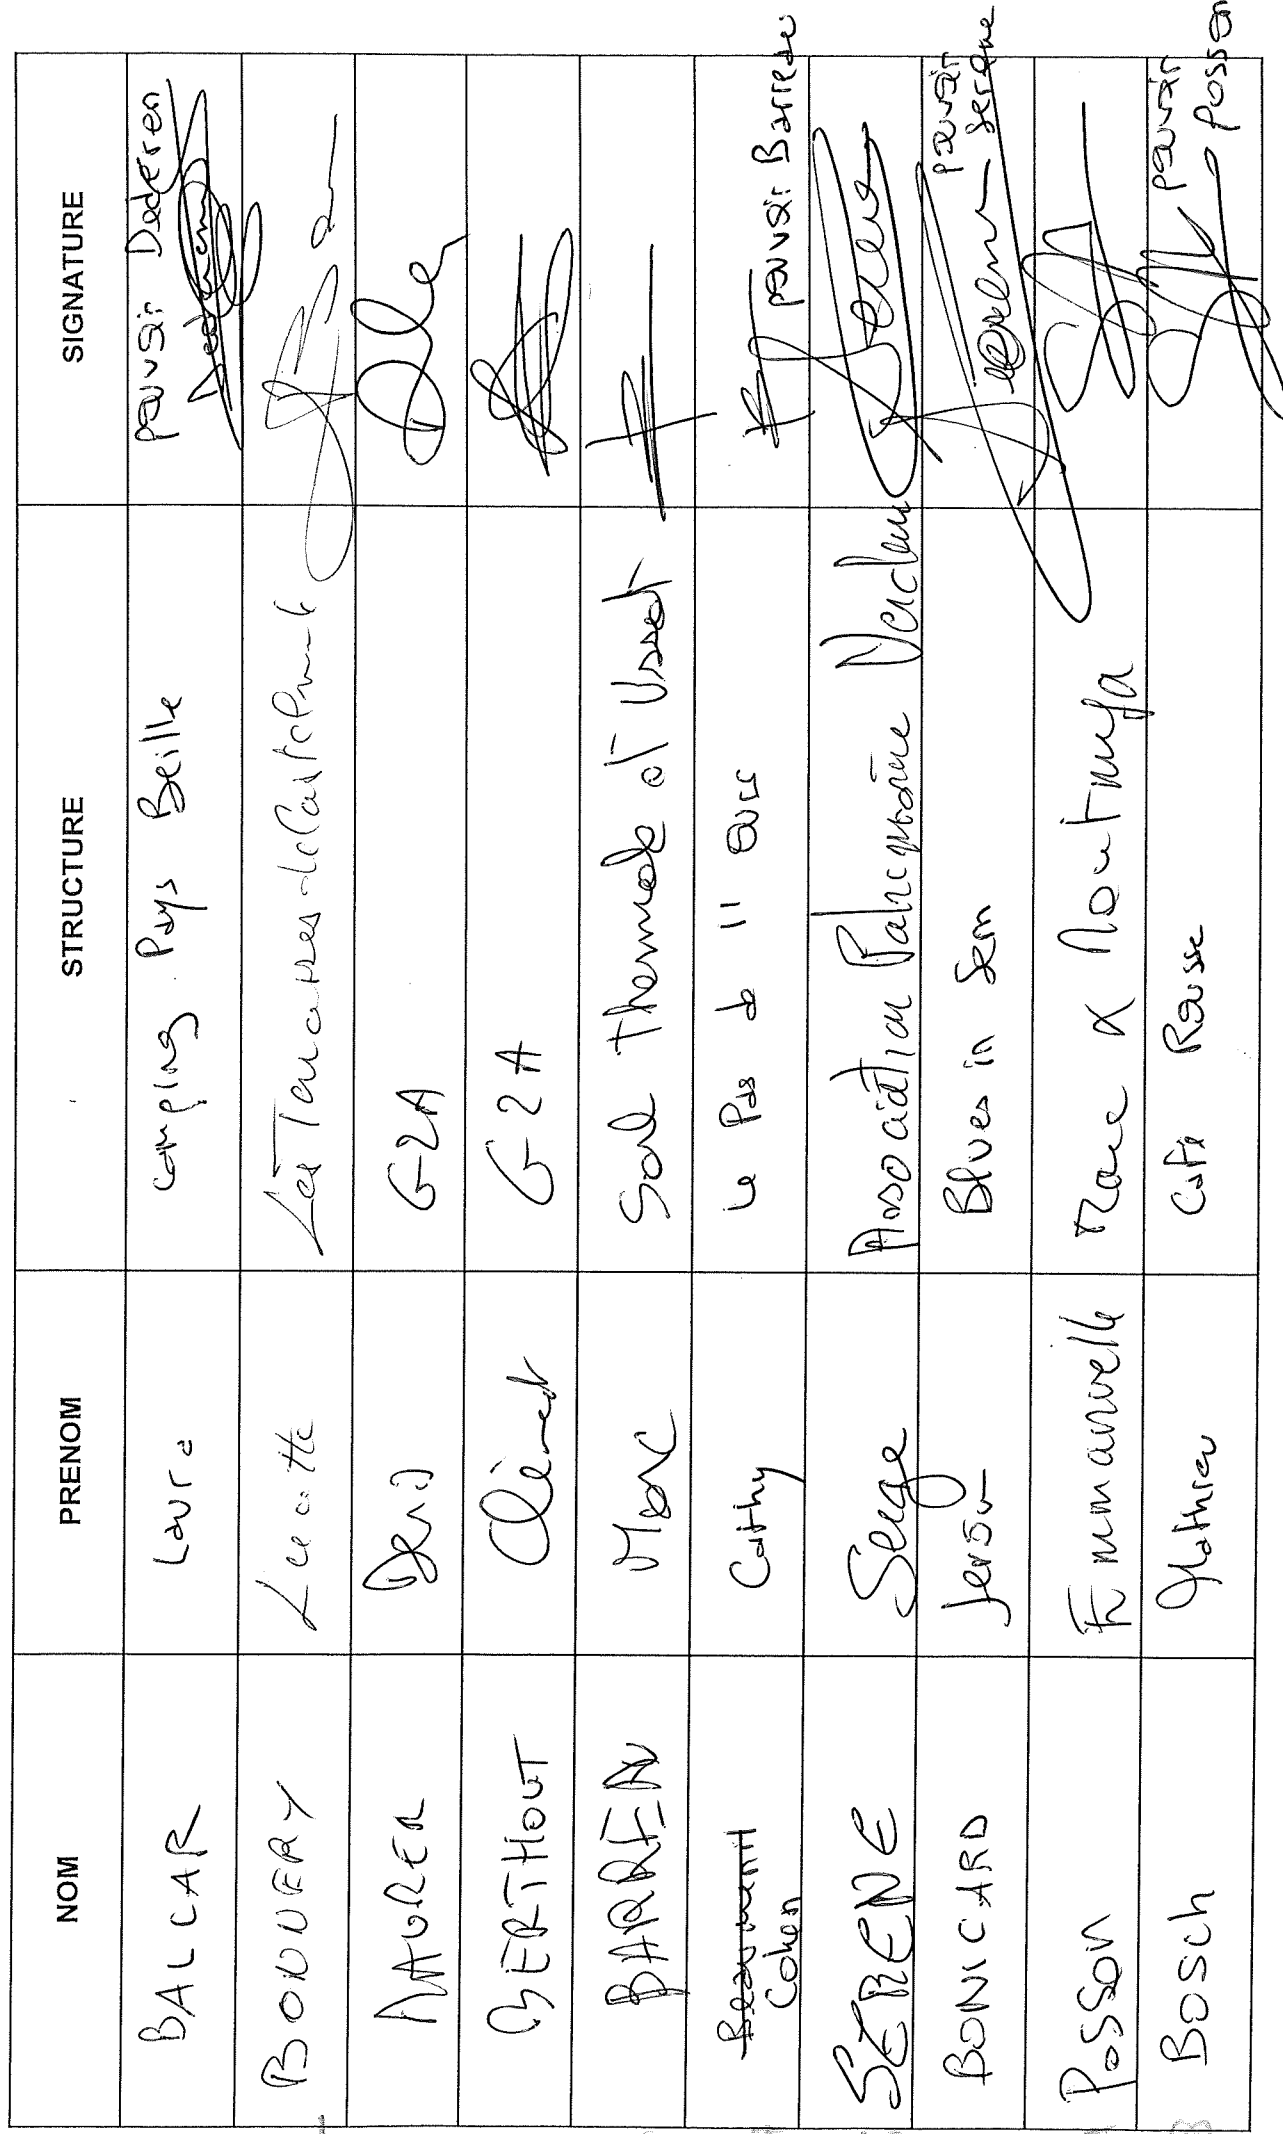 NOM PRENOM STRUCTURE SIGNATURE
BALCAR Laura camping Pays Beille pouvoir Dederen
BONNERY Lucette Les Terrasses de
MAURER Denis G2A
BERTHOUT Clément G2A
BARREAU Marc Sarl thermale d'Ussat
Beaumont Cohen Cathy Le Pas de l'ours pouvoir Barreau
SERENE Serge Association Patrimoine
BONICARD Jerôm Blues in Sem pouvoir Serene
Posson Emmanuelle Marc & Montmija
Bosch Mathieu Café Rousse pouvoir Posson